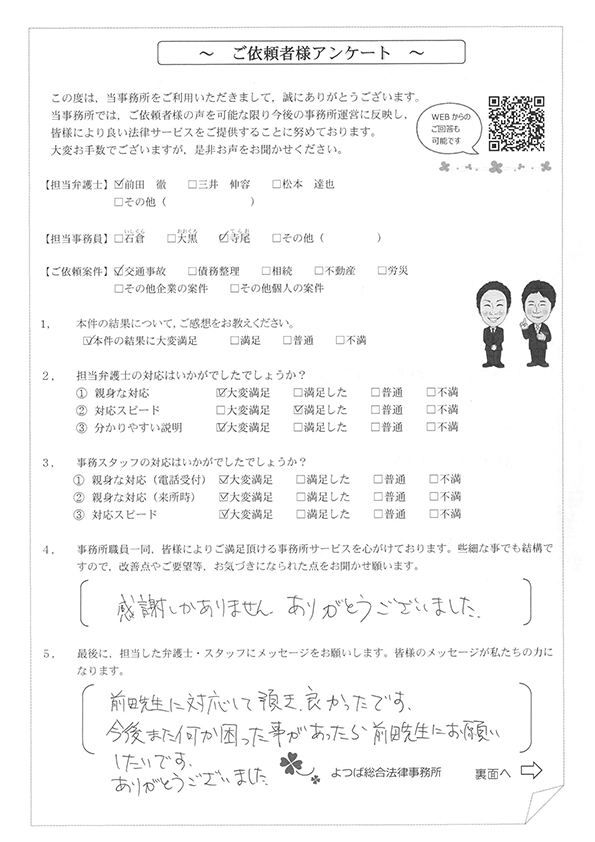 ～　ご依頼者様アンケート　～
この度は，当事務所をご利用いただきまして，誠にありがとうございます。
当事務所では，ご依頼者様の声を可能な限り今後の事務所運営に反映し，
皆様により良い法律サービスをご提供することに努めております。
大変お手数でございますが，是非お声をお聞かせください。
WEBからの
ご回答も
可能です
【担当弁護士】☑前田　徹　□三井　伸容　□松本　達也
□その他（　　　　　　　）
【担当事務員】□石倉　□大黒　☑寺尾　□その他（　　　　）
【ご依頼案件】☑交通事故　□債務整理　□相続　□不動産　□労災
□その他企業の案件　□その他個人の案件
1．　本件の結果について，ご感想をお教えください。
☑本件の結果に大変満足　□満足　□普通　□不満
2．　担当弁護士の対応はいかがでしたでしょうか？
① 親身な対応　☑大変満足　□満足した　□普通　□不満
② 対応スピード　□大変満足　☑満足した　□普通　□不満
③ 分かりやすい説明　☑大変満足　□満足した　□普通　□不満
3．　事務スタッフの対応はいかがでしたでしょうか？
① 親身な対応（電話受付）　☑大変満足　□満足した　□普通　□不満
② 親身な対応（来所時）　☑大変満足　□満足した　□普通　□不満
③ 対応スピード　☑大変満足　□満足した　□普通　□不満
4．　事務所職員一同，皆様によりご満足頂ける事務所サービスを心がけております。些細な事でも結構で
すので，改善点やご要望等，お気づきになられた点をお聞かせ願います。
感謝しかありません ありがとうございました。
5．　最後に，担当した弁護士・スタッフにメッセージをお願いします。皆様のメッセージが私たちの力に
なります。
前田先生に対応して頂き、良かったです。
今後また何か困った事があったら前田先生にお願い
したいです。
ありがとうございました。
よつば総合法律事務所　裏面へ